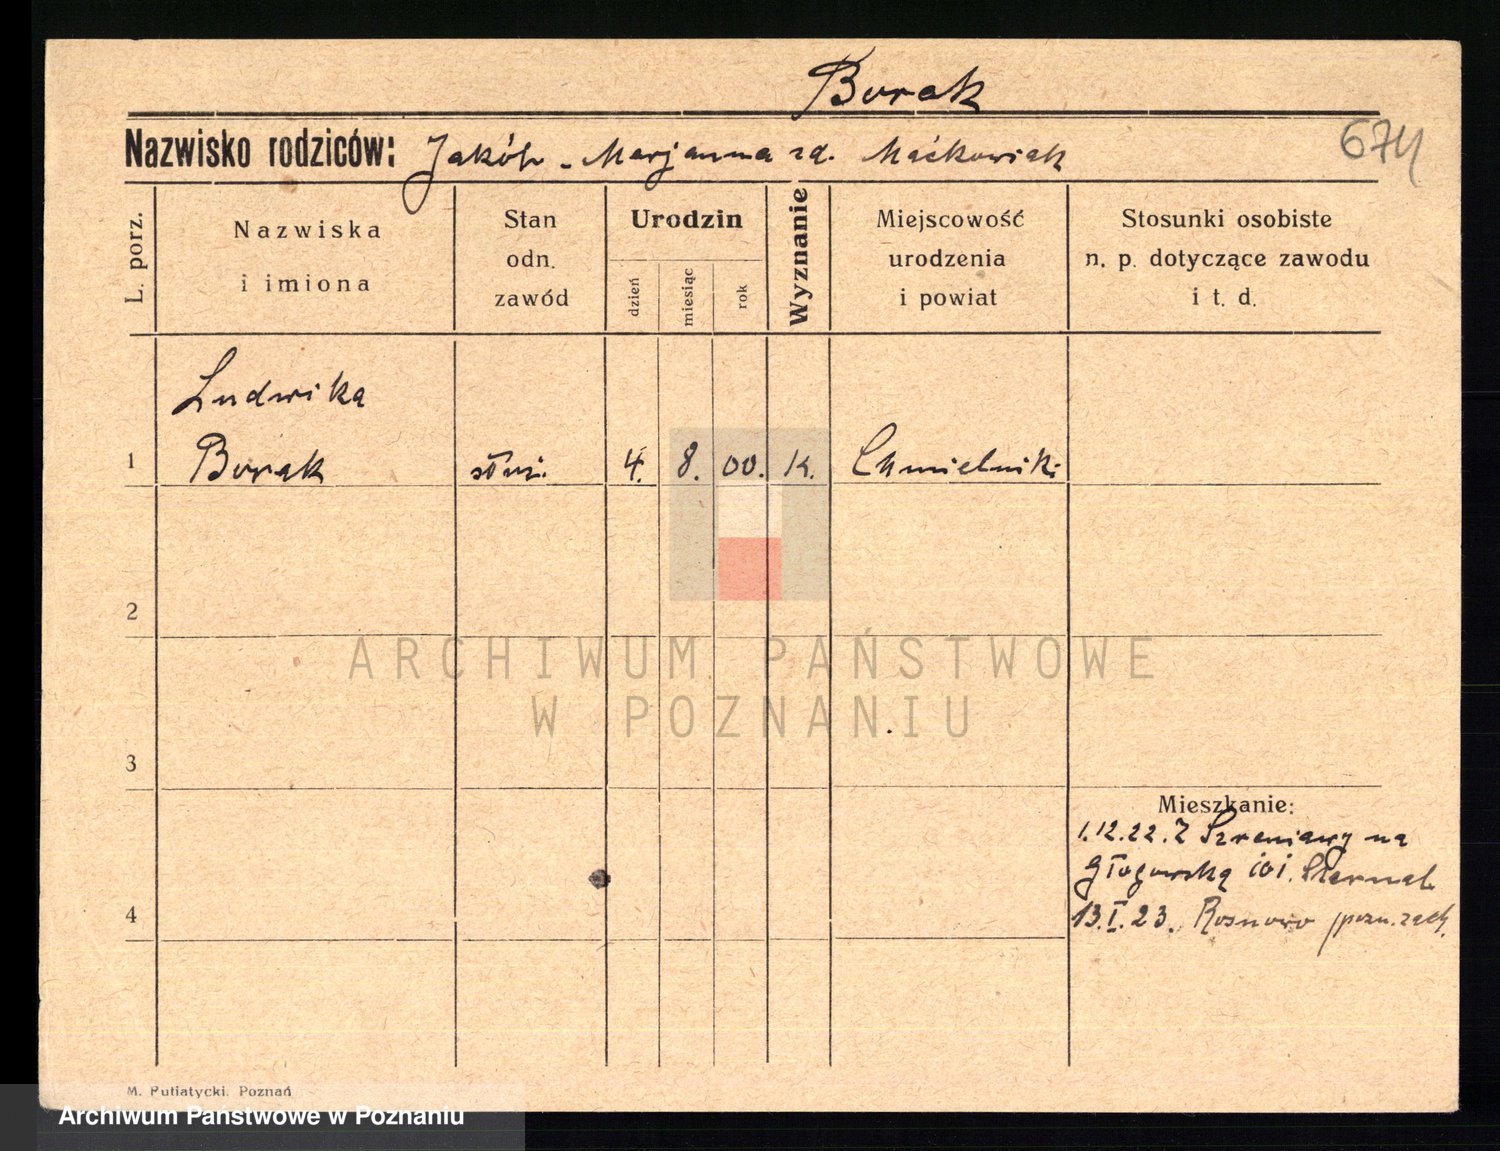 Borak
Nazwisko rodziców: Jakób - Marjanna zd. Maćkowiak
674
L. porz.
Nazwiska
i imiona
Stan
odn.
zawód
Urodzin
dzień
miesiąc
rok
Wyznanie
Miejscowość
urodzenia
i powiat
Stosunki osobiste
n. p. dotyczące zawodu
i t. d.
Ludwika
1 Borak służ. 4. 8. 00. K. Chmielniki
2
ARCHIWUM PAŃSTWOWE
W POZNANIU
3
Mieszkanie:
1.12.22. Z Szreniawy na
Głogowską 101.
4 13.I.23. Rosnowo pozn. zach.
M. Putiatycki. Poznań
Archiwum Państwowe w Poznaniu